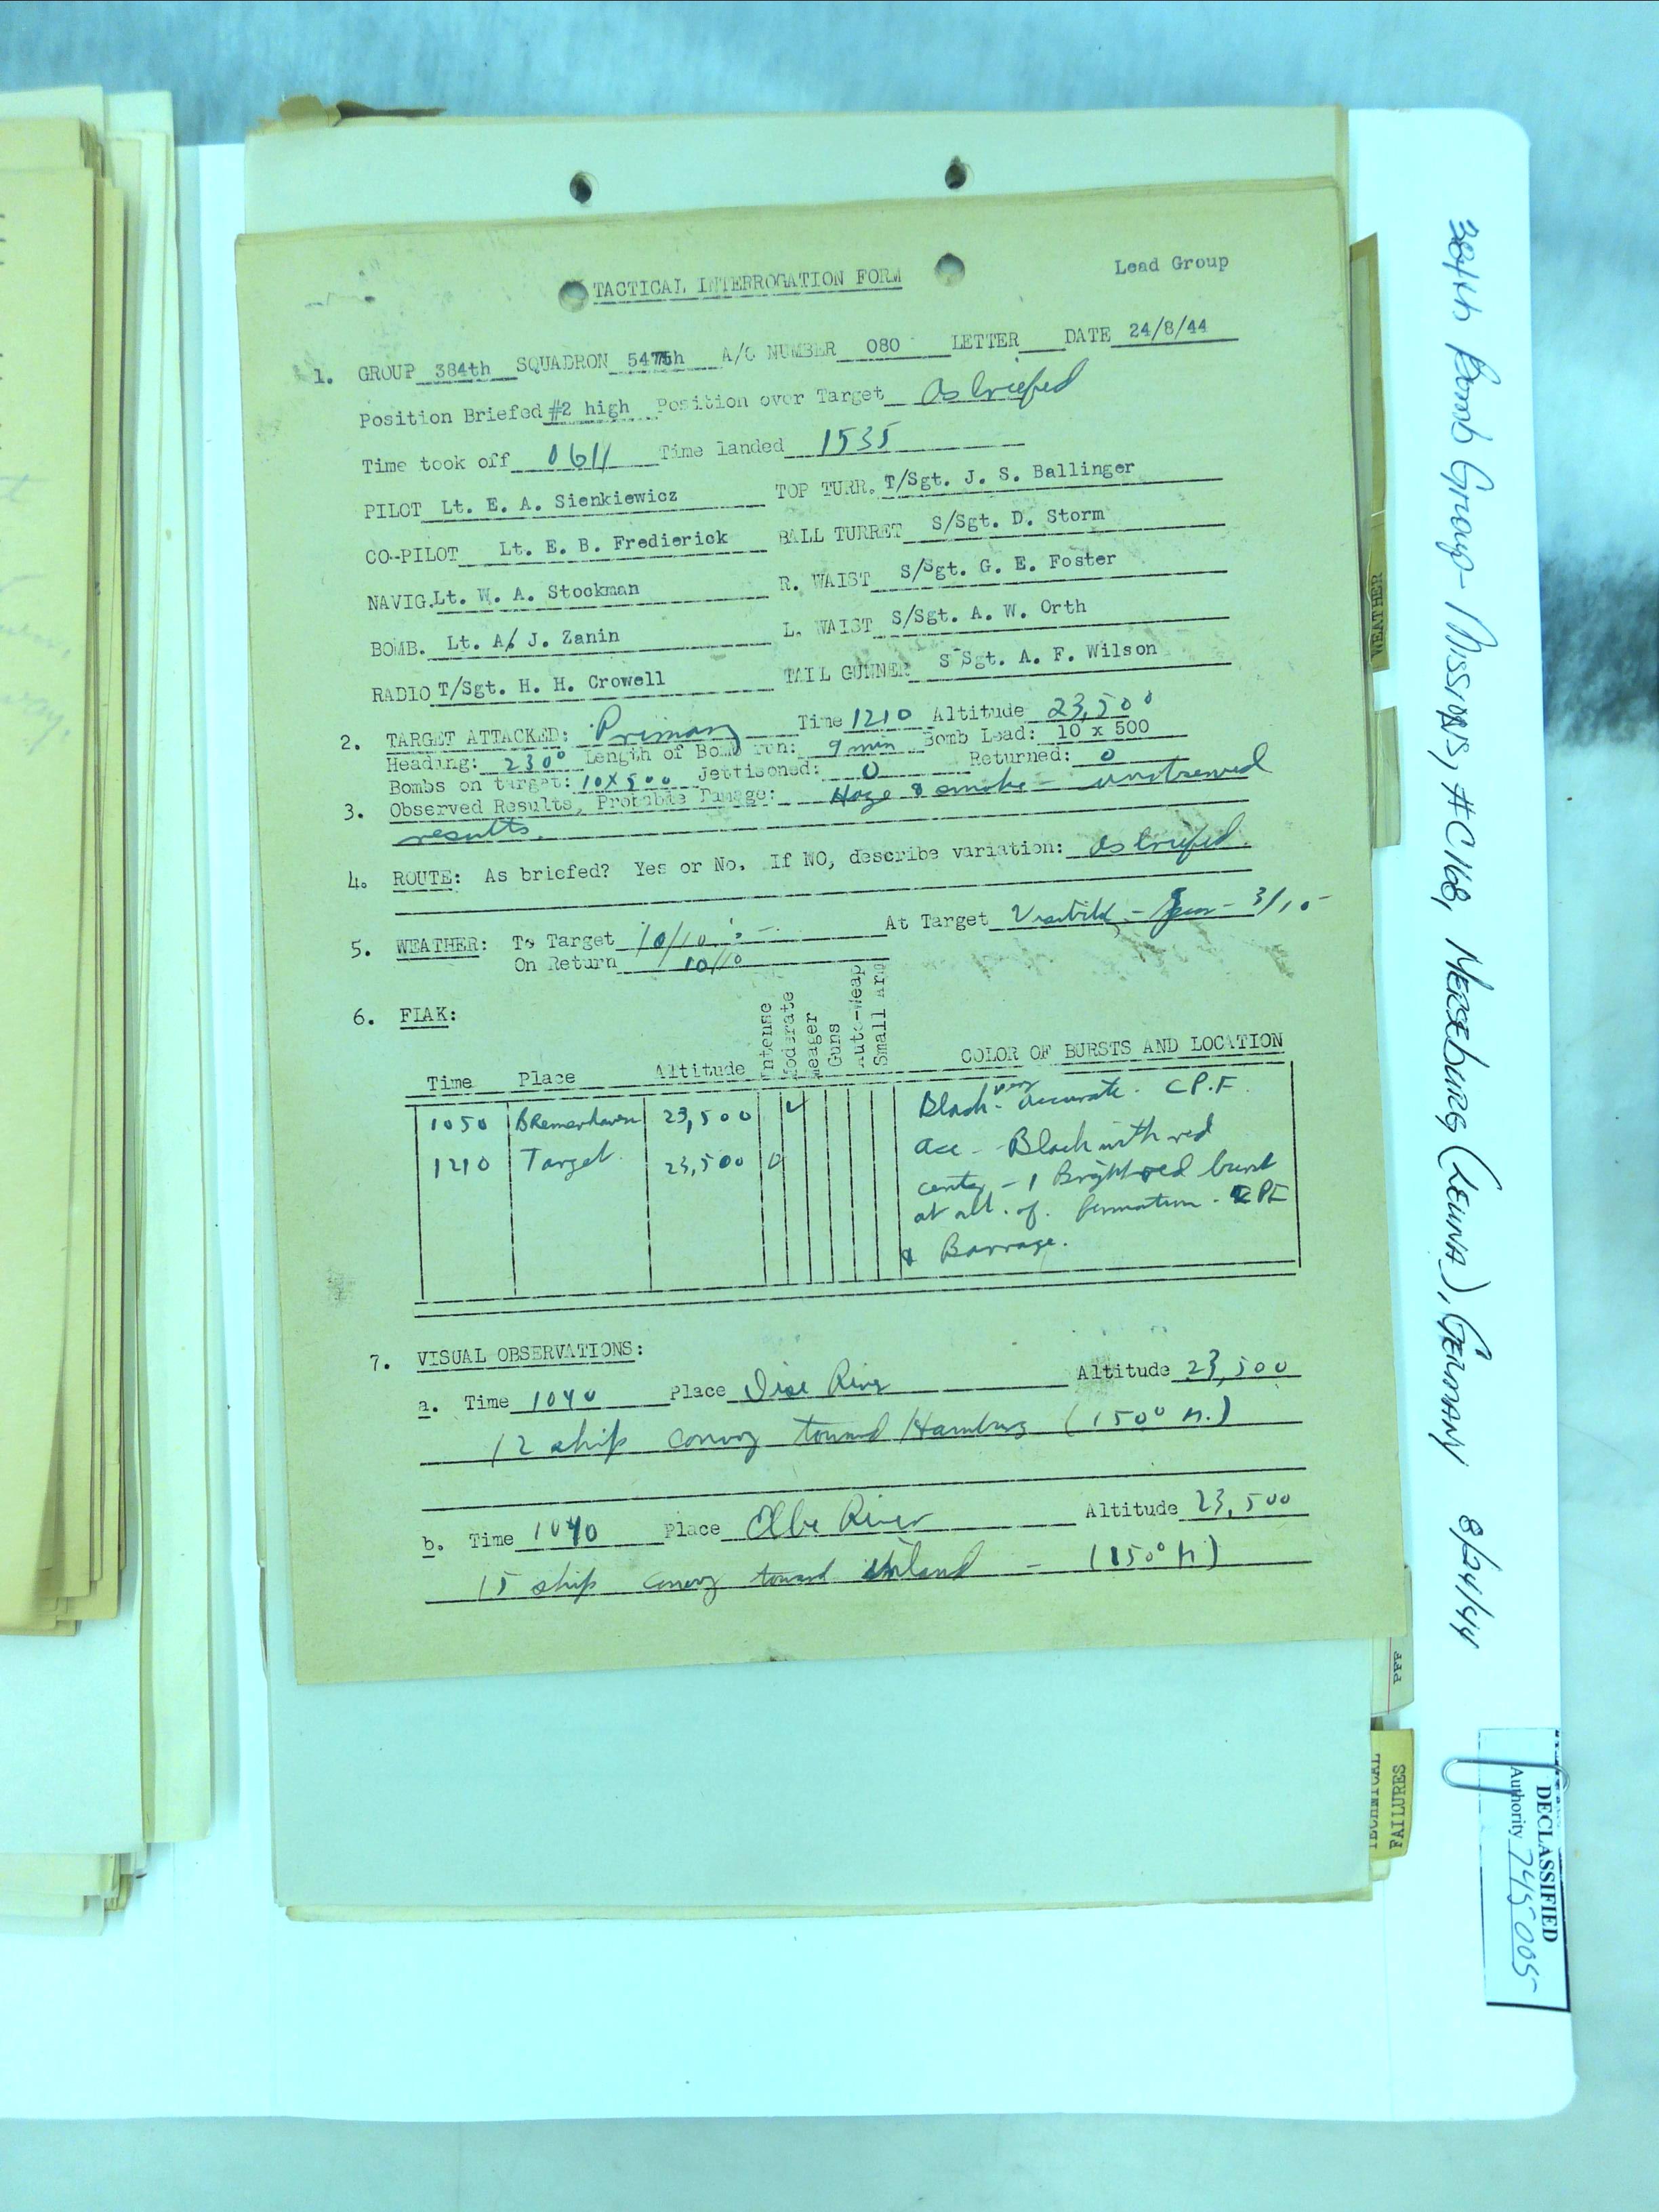 Lead Group
TACTICAL INTERROGATION FORM
1. GROUP 384th SQUADRON 547th A/C NUMBER 080 LETTER DATE 24/8/44
Position Briefed #2 high Position over Target As briefed
Time took off 0611 Time landed 1535
PILOT Lt. E. A. Sienkiewicz TOP TURR. T/Sgt. J. S. Ballinger
CO-PILOT Lt. E. B. Fredierick BALL TURRET S/Sgt. D. Storm
NAVIG. Lt. W. A. Stockman R. WAIST S/Sgt. G. E. Foster
BOMB. Lt. A. J. Zanin L. WAIST S/Sgt. A. W. Orth
RADIO T/Sgt. H. H. Crowell TAIL GUNNER S Sgt. A. F. Wilson
2. TARGET ATTACKED: Primary Time 1210 Altitude 23,500
Heading: 230° Length of Bomb run: 9 min Bomb Load: 10 x 500
Bombs on target: 10x500 Jettisoned: 0 Returned: 0
3. Observed Results, Probable Damage: Haze & smoke - unobserved
results.
4. ROUTE: As briefed? Yes or No. If NO, describe variation: as briefed.
5. WEATHER: To Target 10/10 At Target 3/10
On Return 10/10
6. FLAK:
Intense Moderate Meager Guns Auto-Weap Small Arm
Time Place Altitude COLOR OF BURSTS AND LOCATION
1050 Bremerhaven 23,500 Black - very accurate. C.P.F.
1210 Target 23,500 acc - Black with red
center - 1 Bright red burst
at alt. of. formation. CPF
& Barrage.
7. VISUAL OBSERVATIONS:
a. Time 1040 Place River Altitude 23,500
12 ship convoy toward Hamburg (150° h.)
b. Time 1040 Place Elbe River Altitude 23,500
15 ship convoy toward inland - (150° h)
384th Bomb Group - Missions, #C168, Merseburg (Leuna), Germany 8/24/44
WEATHER
PFF
TECHNICAL
FAILURES
DECLASSIFIED
Authority 745005